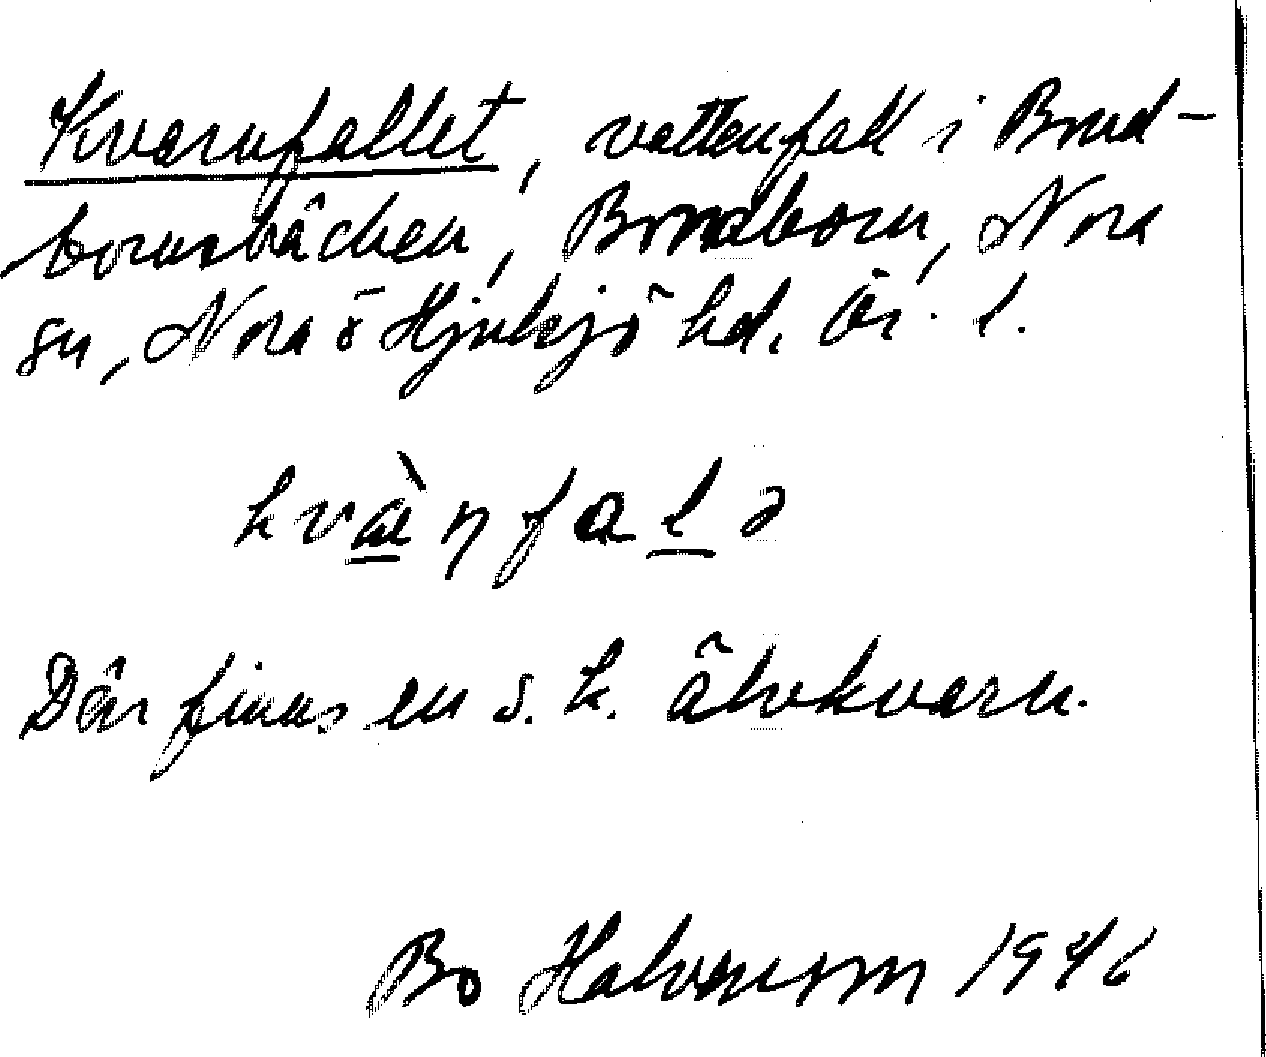 Kvarnfallet, vattenfall i Brud-
bornsbäcken, Brudborn, Nora
sn, Nora o Hjulsjö hd. Ör. l.
kvæ̀ṇfalə
Där finns en s. k. älvkvarn.
Bo Halvarsson 1946